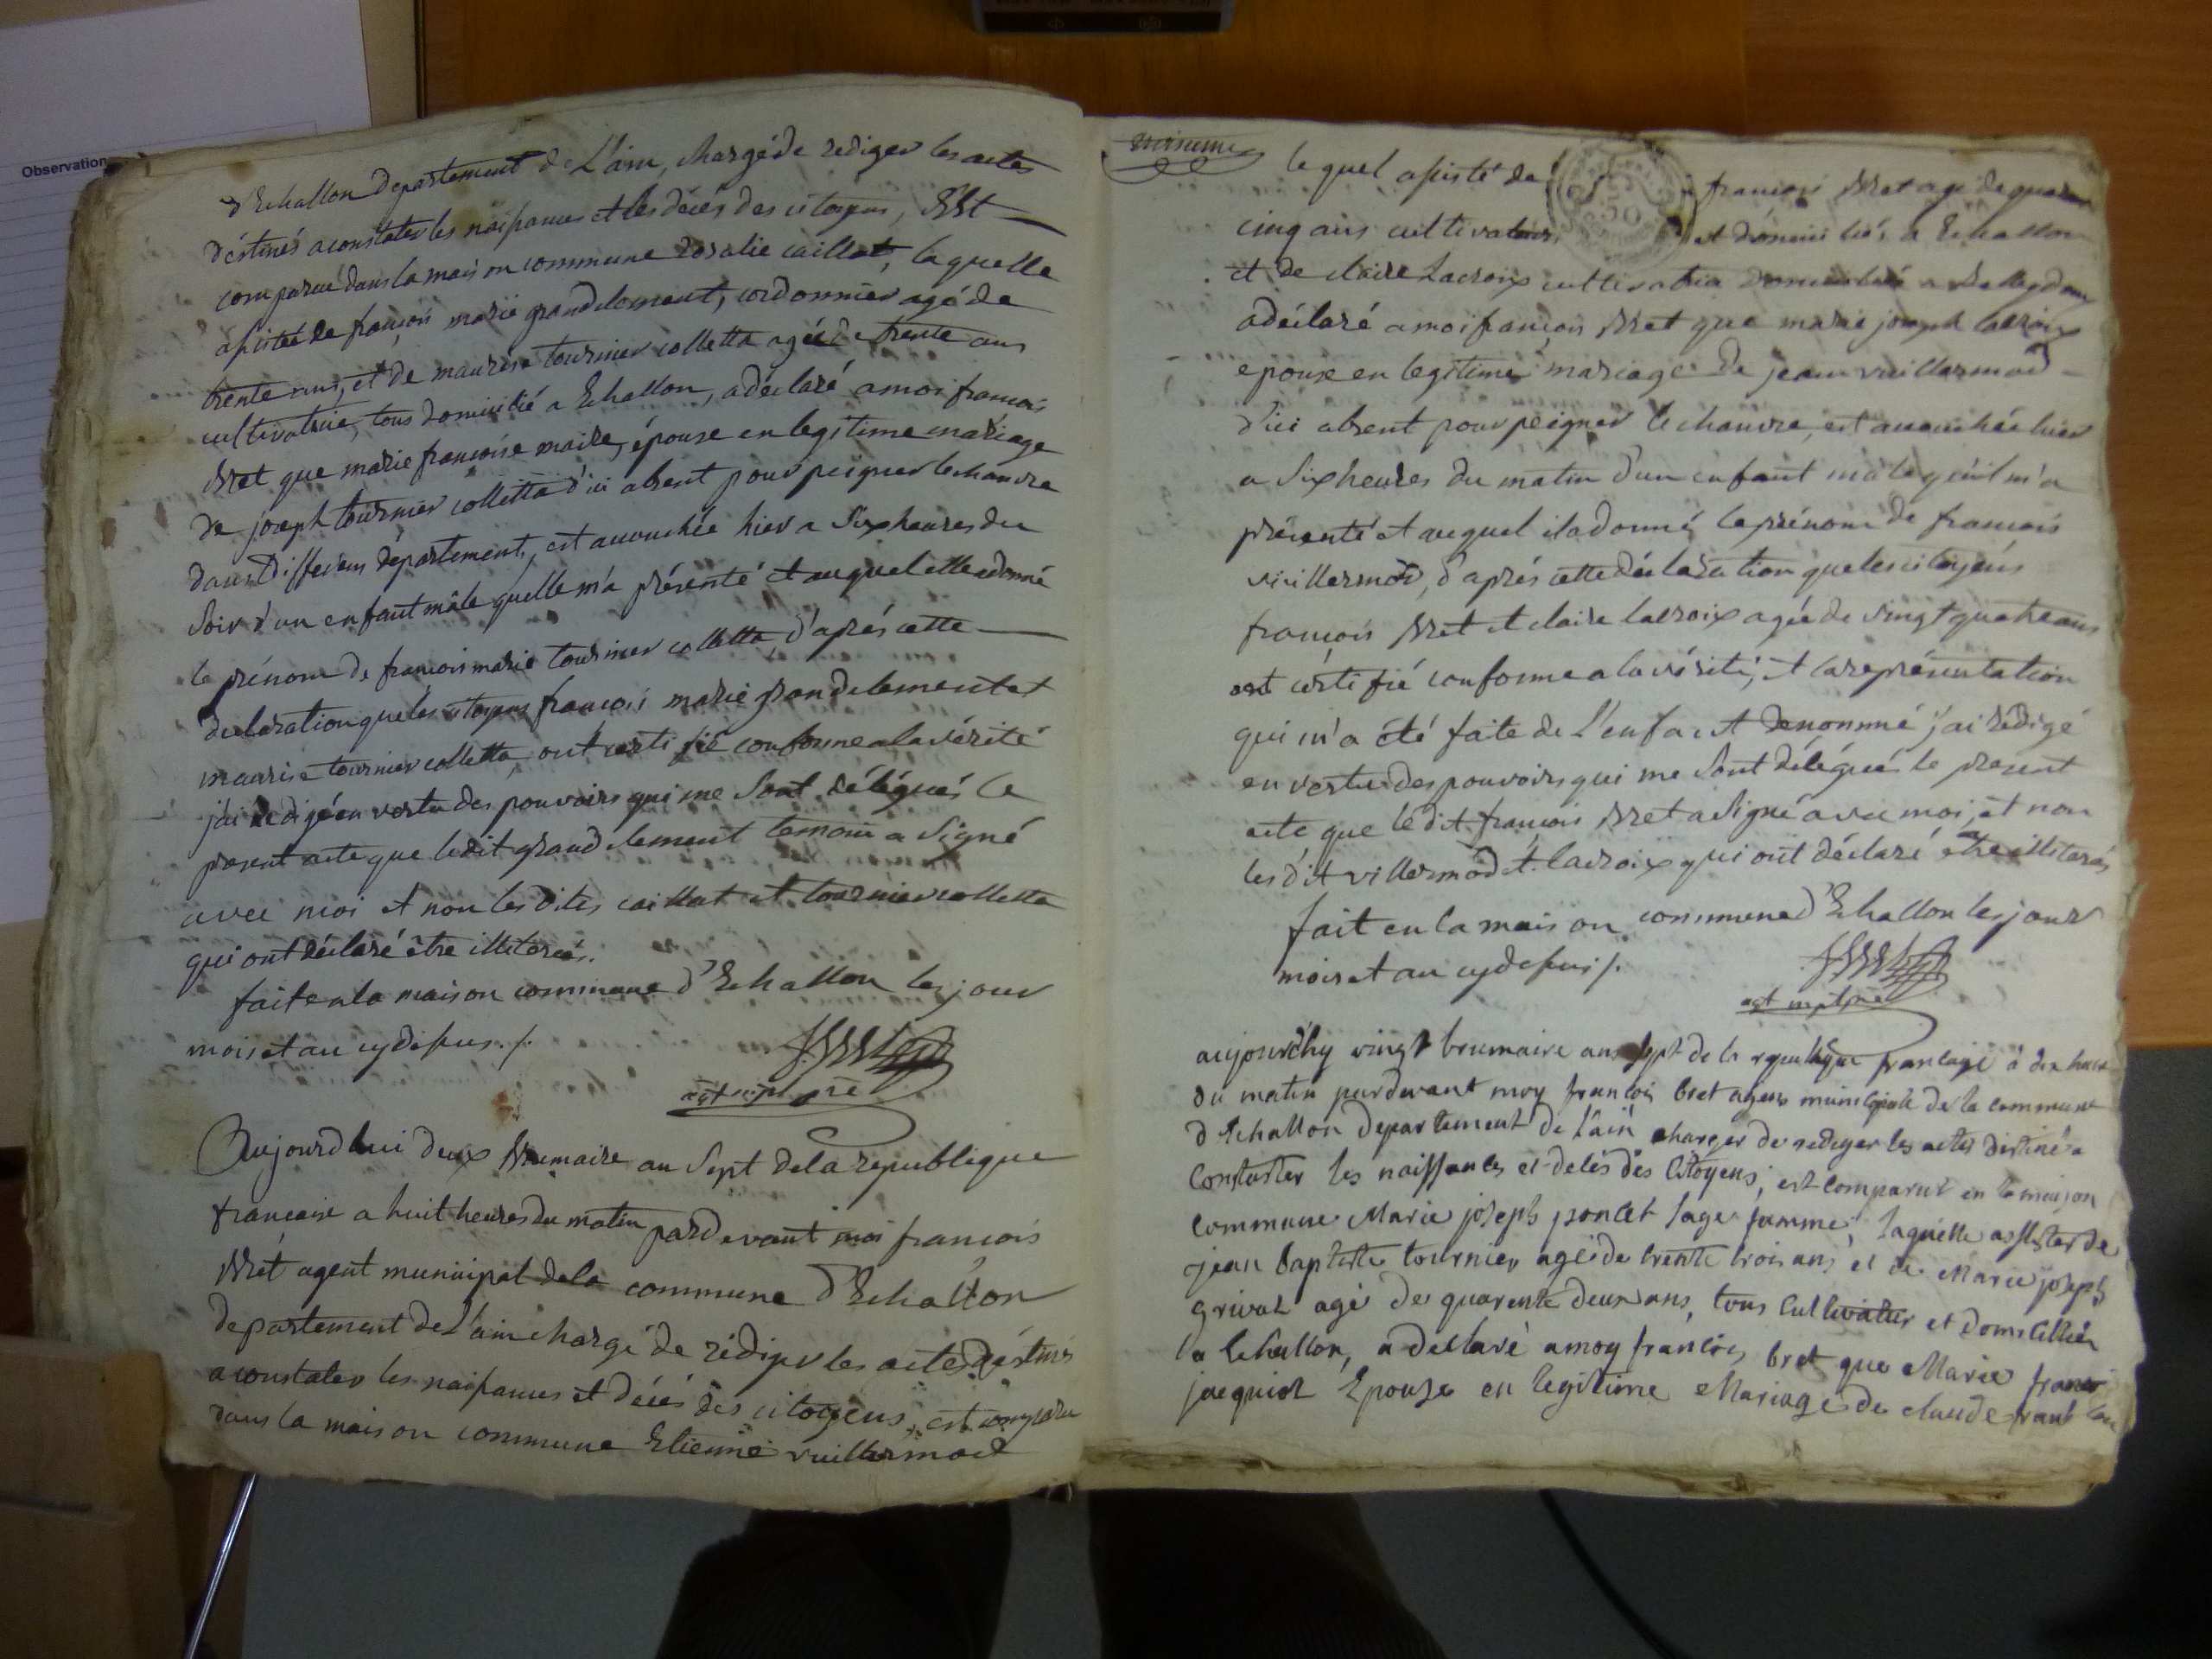 Observation
d'Echallon departement de L'ain, chargé de rediger les actes
déstinés a constater les naissances et les décés des citoyens, Est
comparuë dans la maison commune Rosalie caillat, la quelle
assistée de françois marie grandclement, cordonnier agé de
trente ans, et de maurise tournier colletta agée de trente ans
cultivatrice, tous domicilié a Echallon, a déclaré a moi francois
Bret que marie francoise maire, épouse en legitime mariage
de joseph tournier colletta d'ici absent pour peigner le chanvre
dans differens département, est accouchée hier a Six heures du
Soir d'un enfant mâle quelle m'a présenté et auquel elle a donné
le prénom de francois marie tournier colletta, d'aprés cette
declaration que les citoyens francois marie grandclement et
maurise tournier colletta, ont certifié conforme a la vérité
j'ai redigé en vertu des pouvoirs qui me Sont délégués le
present acte que ledit grandclement temoin a Signé
avec moi et non les dites caillat et tournier colletta
qui ont déclaré être illiterés.
fait en la maison commune d'Echallon les jour
mois et an cy dessus ./.
F. Bret
agt mpl
Aujourd'hui deux Brumaire an Sept de la republique
francaise a huit heures du matin pardevant moi francois
Bret agent municipal de la commune d'Echallon
departement de L'ain chargé de rédiger les actes déstinés
a constater les naissances et décés des citoyens, est comparu
dans la maison commune Etienne vuillermod
lequel assisté de françois Bret agé de quarante
cinq ans cultivateurs et domiciliés a Echallon
et de claire Lacroix cultivatrice
a déclaré a moi françois Bret que marie joseph lacroix
epouse en legitime mariage de jean vuillermod
d'ici absent pour peigner le chanvre, est accouchée hier
a Six heures du matin d'un enfant mâle qu'il m'a
présenté et auquel il a donné le prénom de francois
vuillermod, d'aprés cette déclaration que les citoyens
françois Bret et claire lacroix agée de vingt quatre ans
ont certifié conforme a la vérité, et la représentation
qui m'a été faite de L'enfant denommé j'ai rédigé
en vertu des pouvoirs qui me Sont délégués le present
acte que le dit françois Bret a Signé avec moi, et non
les dit villermod et lacroix qui ont déclaré être illiterés
fait en la maison commune d'Echallon les jour
mois et an cy dessus ./.
F. Bret
agt mpl
aujourdhy vingt brumaire ans sept de la republique francaise a dix heure
du matin pardevant moy francois bret agens municipale de la commune
d Echallon departement de l'ain charger de rediger les actes destiné a
Constater les naissances et decés des Citoyens, est comparut en la maison
commune Marie joseph poncet sage famme, laquelle assister de
jean baptiste tournier agé de trente trois ans et de Marie joseph
Grivat agé de quarente deux ans, tous Cultivatur et domicilliér
a Echallon, a declaré a moy francois bret que Marie
jacquiot Epouse en legitime Mariage de claude